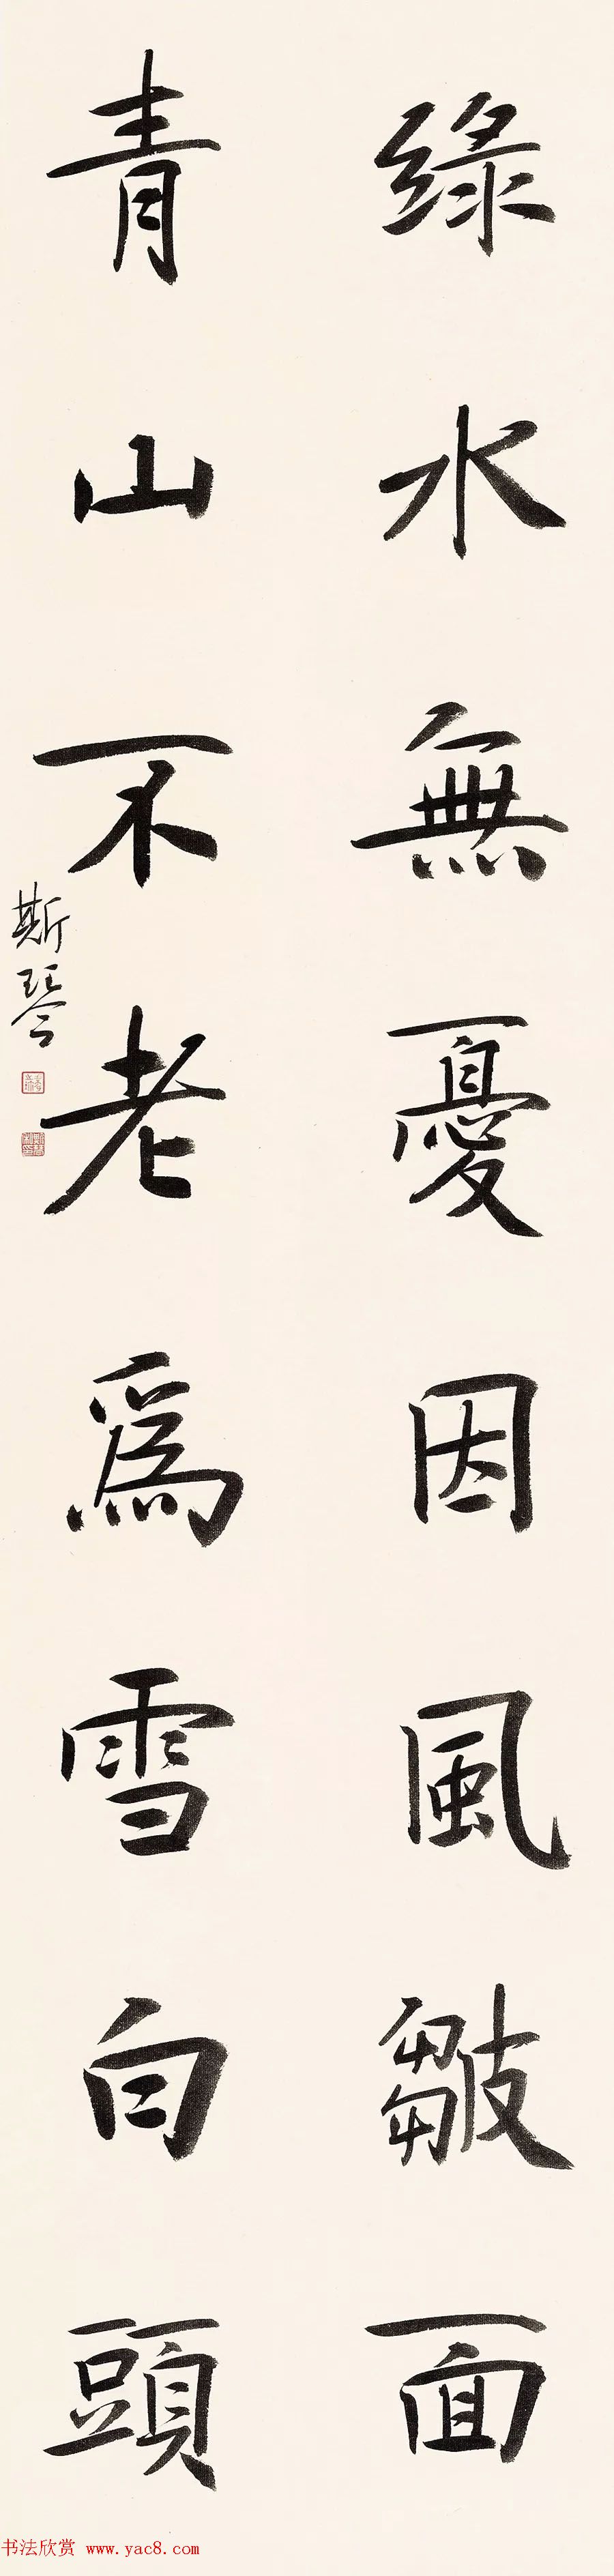 綠水無憂因風皺面
青山不老爲雪白頭
斯琴
书法欣赏 www.yac8.com